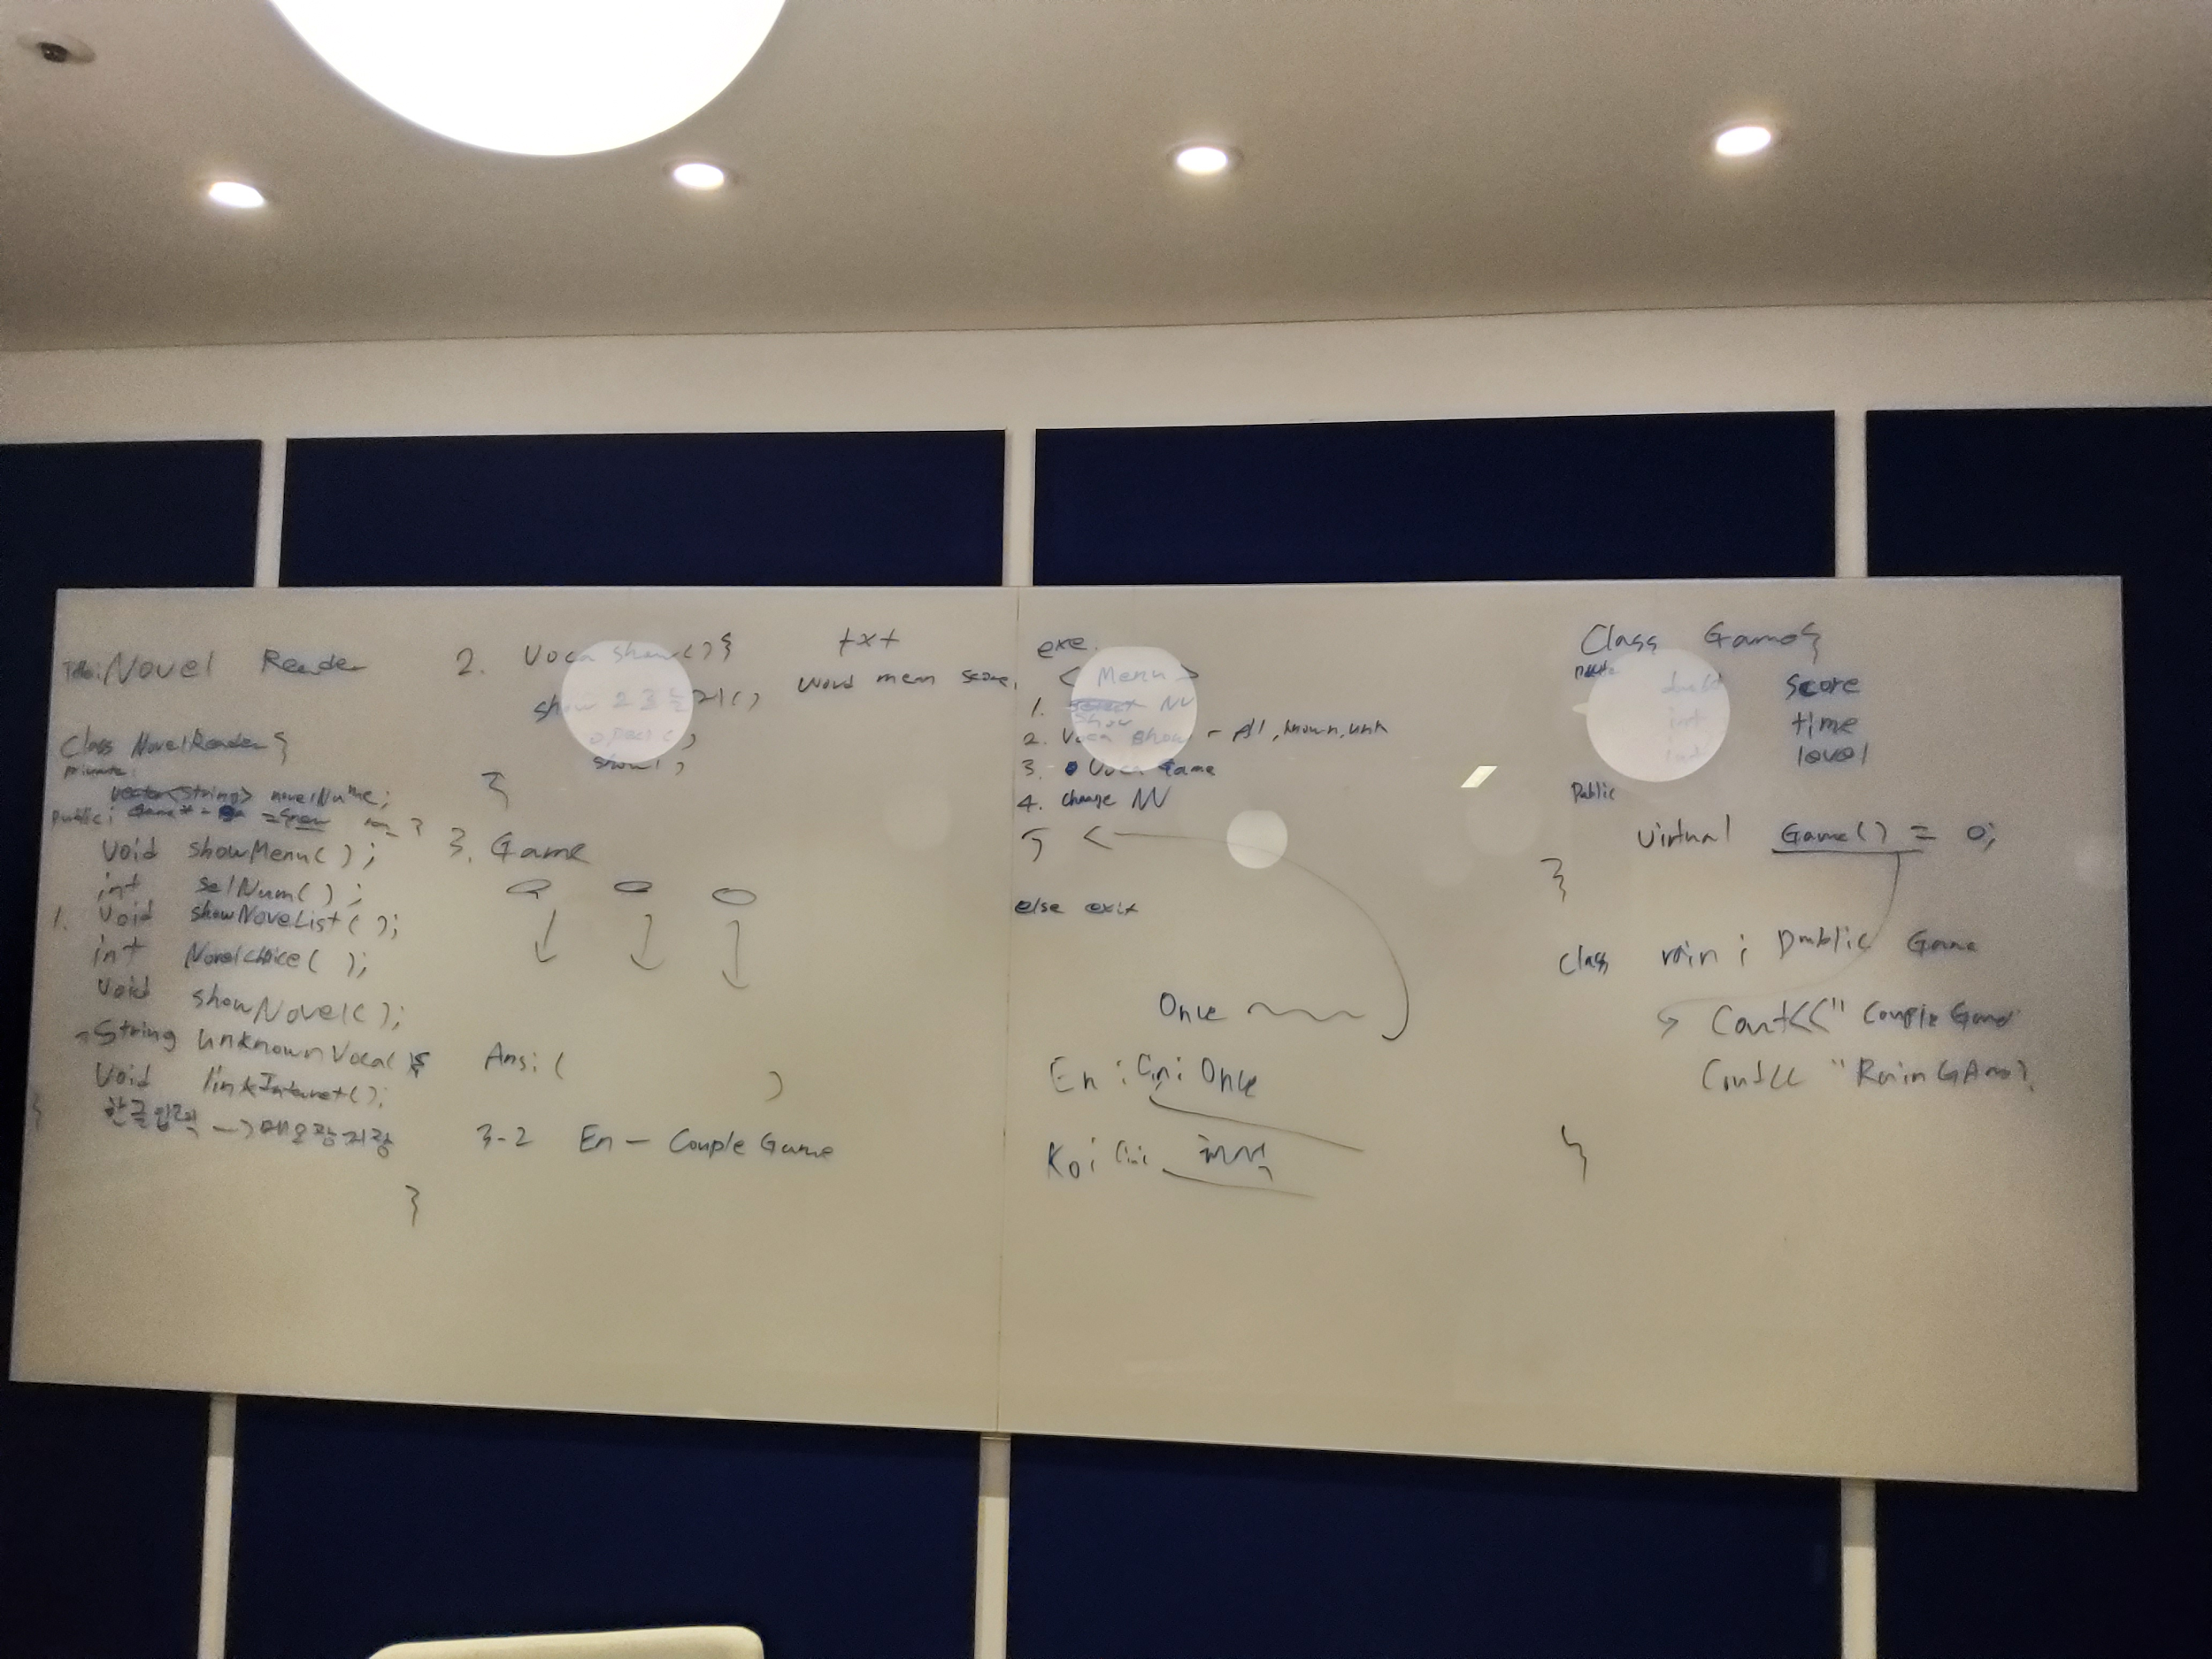 Title: Novel Reader
Class NovelReader {
private:
vector<string> novelName;
public:
void showMenu( );
int selNum( );
1. void showNoveList( );
int NovelChoice( );
void showNovel( );
String unknownVoca( )
void linkInternet( );
한글입력 -> 메모장저장
}
2. Voca show( ) {
show
open( )
show( );
}
txt
word mem score.
3. Game
Ans: ( )
3-2 En - Couple Game
exe.
< Menu >
1. select NV
show
2. Voca show - All, known, unk
3. Voca Game
4. change NV
5
else exit
Once
En : Cin : Once
Ko : Cin :
Class Game {
score
int time
int level
Public
virtual Game( ) = 0;
}
class rain : Public Game
Cout<<" Couple Game
Cout<< "RainGAme
}